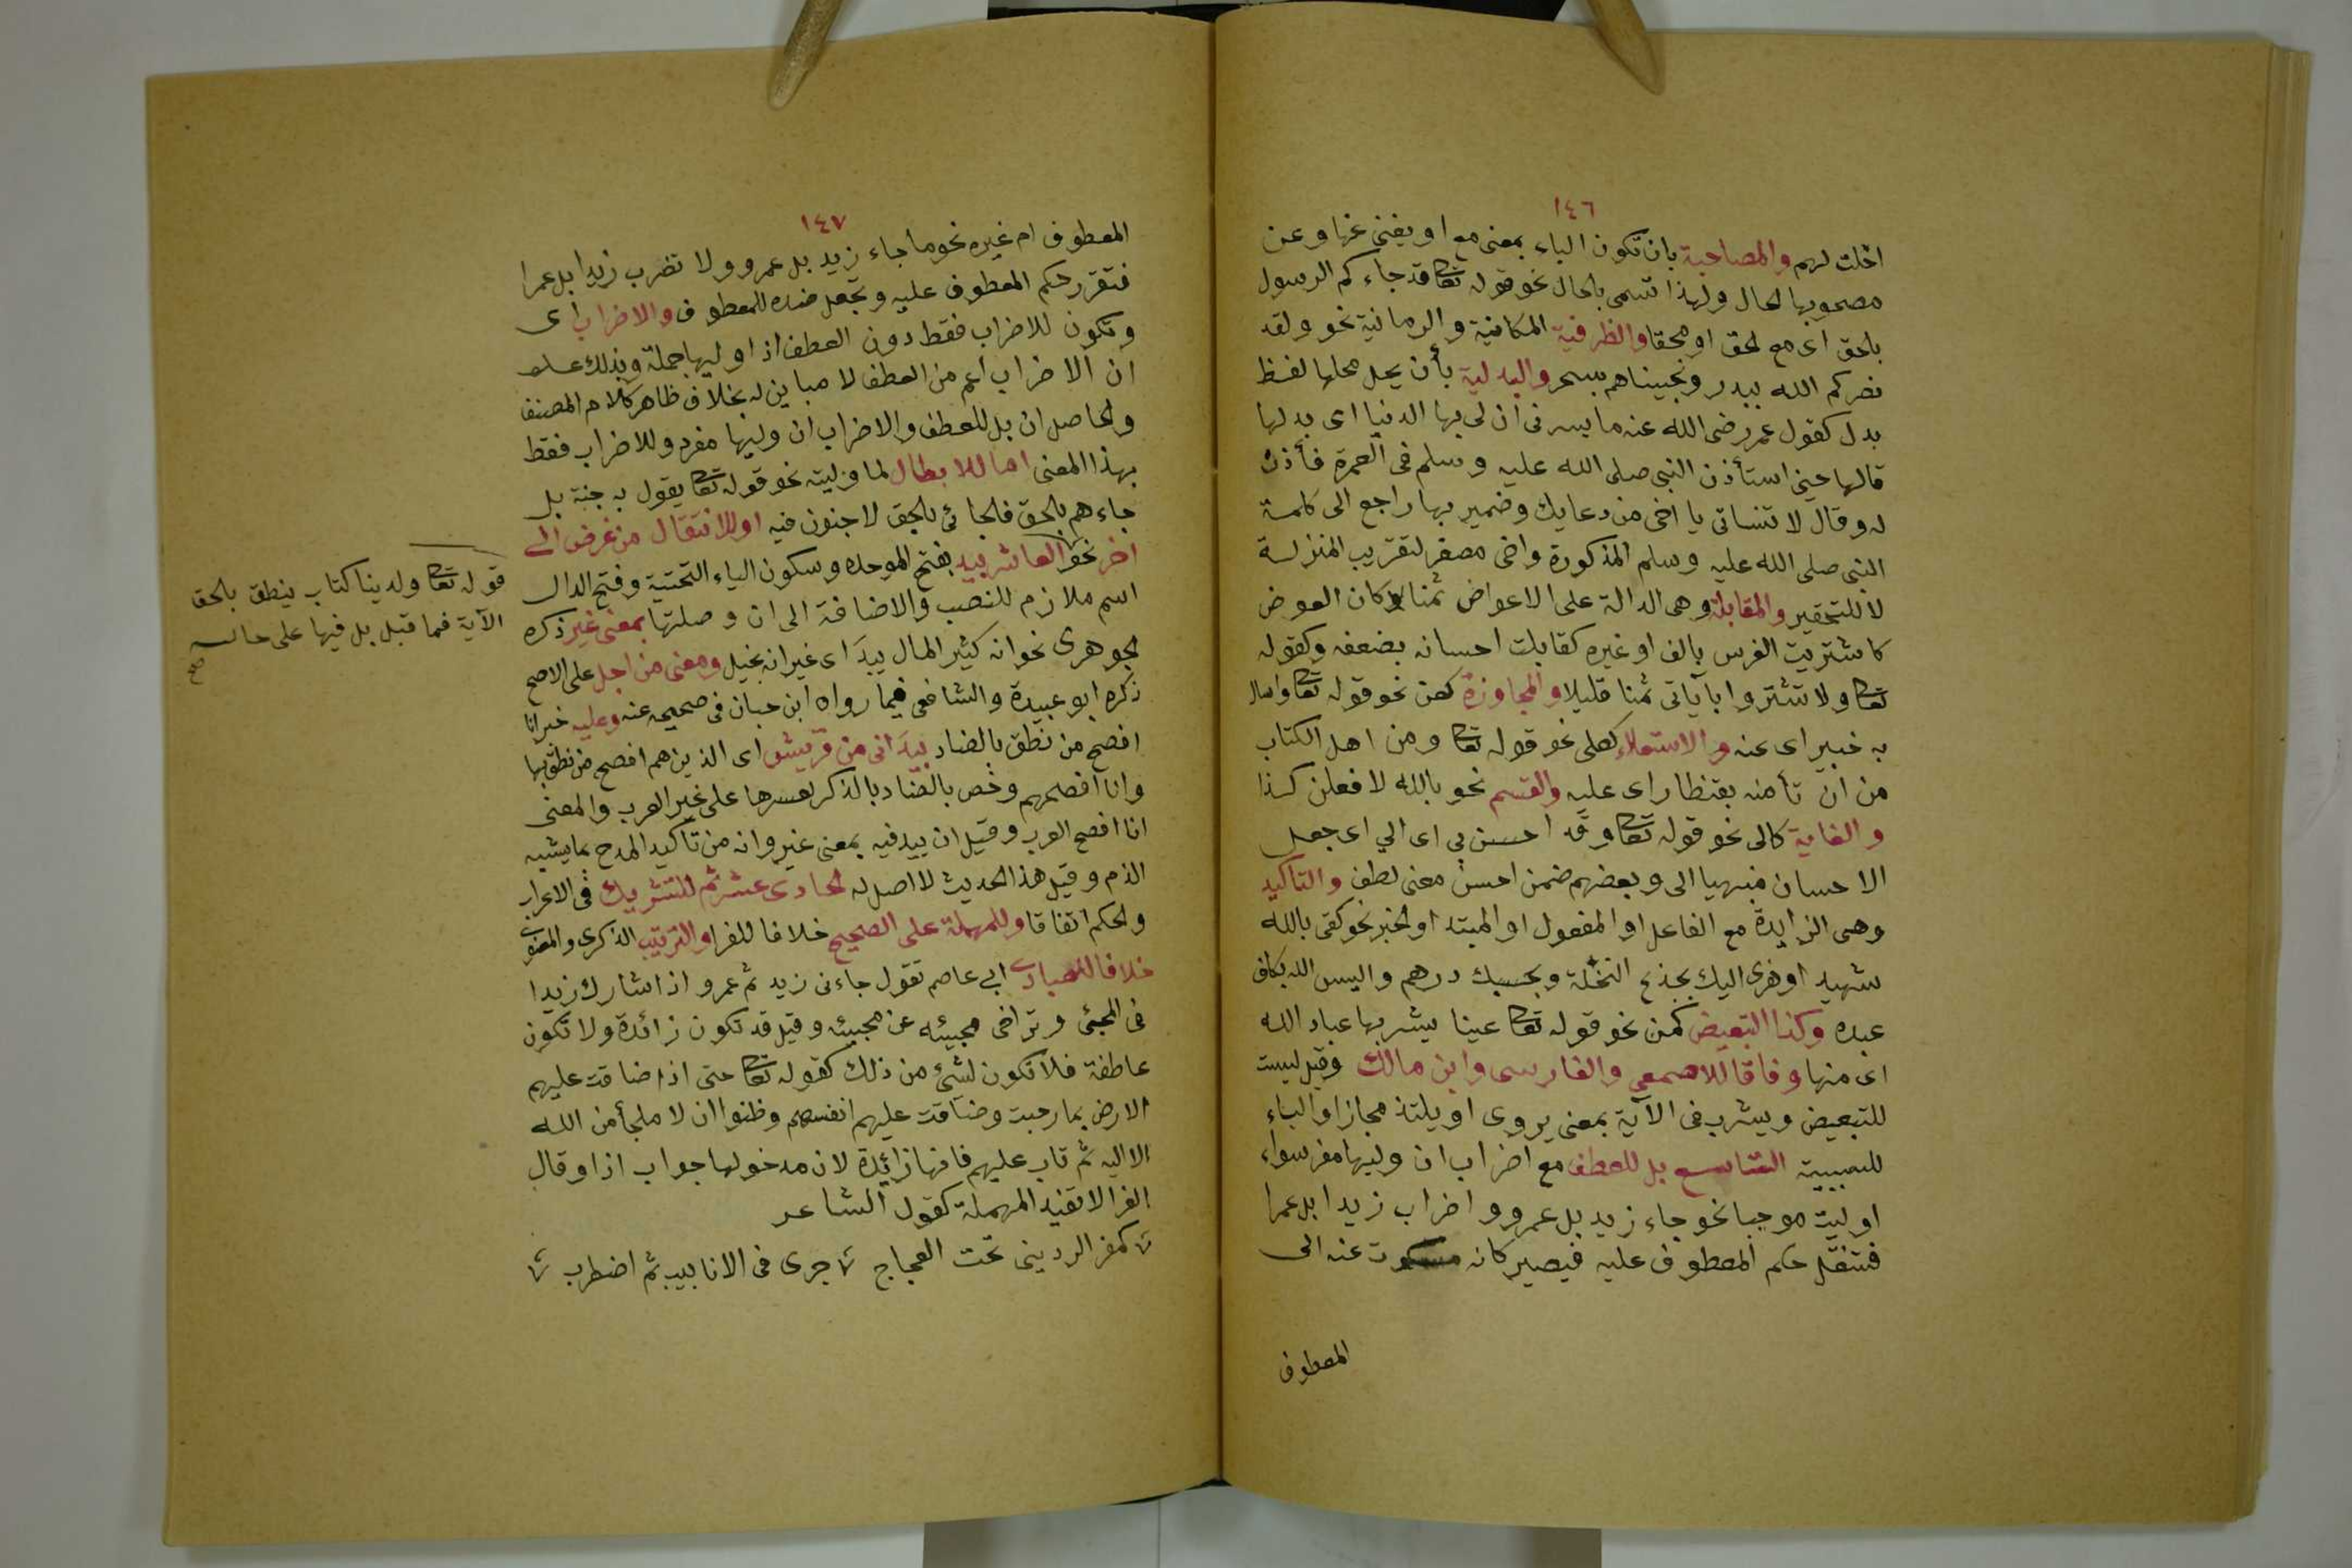 ١٤٦
احلت لهم والمصاحبة بان تكون الباء بمعنى مع او يغنى عنها وعن
مصحوبها الحال ولهذا تسمى بالحال نحو قوله تعا قد جاءكم الرسول
بالحق اى مع الحق او محقا والظرفية المكانية والزمانية نحو ولقد
نصركم الله ببدر ونجيناهم بسحر والبدلية بأن يحل محلها لفظ
بدل كقول عمر رضى الله عنه ما يسرنى ان لى بها الدنيا اى بدلها
قالها حين استأذن النبى صلى الله عليه وسلم فى العمرة فأذن
له وقال لا تنسانى يا اخى من دعايك وضمير بها راجع الى كلمة
النبى صلى الله عليه وسلم المذكورة واخى مصغر لتقريب المنزلة
لا للتحقير والمقابلة وهى الدالة على الاعواض ثمنا كان العوض
كاشتريت الفرس بالف او غيره كقابلت احسانه بضعفه وكقوله
تعا ولا تشتروا بآياتى ثمنا قليلا والمجاوزة كعن نحو قوله تعا واسال
به خبيرا اى عنه والاستعلاء كعلى نحو قوله تعا ومن اهل الكتاب
من ان تأمنه بقنطار اى عليه والقسم نحو بالله لافعلن كذا
والغاية كالى نحو قوله تعا وقد احسن بي اى الي اى جعل
الاحسان منهيا الى وبعضهم ضمن احسن معنى لطف والتاكيد
وهى الزايدة مع الفاعل او المفعول او المبتد او الخبر نحو كفى بالله
شهيد او هزى اليك بجذع النخلة وبحسبك درهم واليس الله بكاف
عبده وكذا التبعيض كمن نحو قوله تعا عينا يشرب بها عباد الله
اى منها وفاقا للاصمعي والفارسى وابن مالك وقيل ليست
للتبعيض ويشرب فى الآية بمعنى يروى او يلتذ مجازا والباء
للسببية التاسع بل للعطف مع اضراب ان وليها مفر سواء
اوليت موجبا نحو جاء زيد بل عمرو واضراب زيدا بل عمرا
فتنقل حكم المعطوف عليه فيصير كانه مسكوت عنه الى
المعطوف
١٤٧
المعطوف ام غيره نحو ما جاء زيد بل عمرو ولا تضرب زيدا بل عمرا
فتقرر حكم المعطوف عليه وتجعل ضده للمعطوف والاضراب اى
وتكون للاضراب فقط دون العطف اذا وليها جملة وبذلك علم
ان الاضراب اعم من العطف لا مباين له بخلاف ظاهر كلام المصنف
والحاصل ان بل للعطف والاضراب ان وليها مفرد وللاضراب فقط
بهذا المعنى اما للابطال لما وليته نحو قوله تعا يقول به جنة بل
جاءهم بالحق فالجائى بالحق لا جنون فيه او للانتقال من غرض الى
اخر نحو العاشر بيد بفتح الموحده وسكون الياء التحتية وفتح الدال
اسم ملازم للنصب والاضافة الى ان وصلتها بمعنى غير ذكره
الجوهرى نحو انه كثير المال بيد اى غير انه بخيل ومعنى من اجل على الاصح
ذكره ابو عبيدة والشافعى فيما رواه ابن حبان فى صحيحه عنه وعليه خبر انا
افصح من نطق بالضاد بيد انى من قريش اى الذين هم افصح من نطق بها
وانا افصحهم وخص بالضاد بالذكر لعسرها على غير العرب والمعنى
انا افصح العرب وقيل ان بيد فيه بمعنى غير وانه من تأكيد المدح بما يشبه
الذم وقيل هذا الحديث لا اصل له الحادى عشر ثم للتشريك فى الاعراب
والحكم اتفاقا وللمهلة على الصحيح خلافا للفرا والترتيب الذكرى والمعنوى
خلافا للعبادى ابي عاصم تقول جاءنى زيد ثم عمرو اذا شارك زيدا
فى المجئ وتراخى مجيئه عن مجيئه وقيل قد تكون زائدة ولا تكون
عاطفة فلا تكون لشئ من ذلك كقوله تعا حتى اذا ضاقت عليهم
الارض بما رحبت وضاقت عليهم انفسهم وظنوا ان لا ملجأ من الله
الا اليه ثم تاب عليهم فانها زائدة لان مدخولها جواب اذا وقال
الفرا لا تفيد المهملة كقول الشاعر
كهز الردينى تحت العجاج جرى فى الانابيب ثم اضطرب
قوله تعا ولدينا كتاب ينطق بالحق
الآية فما قبل بل فيها على حاله
صح